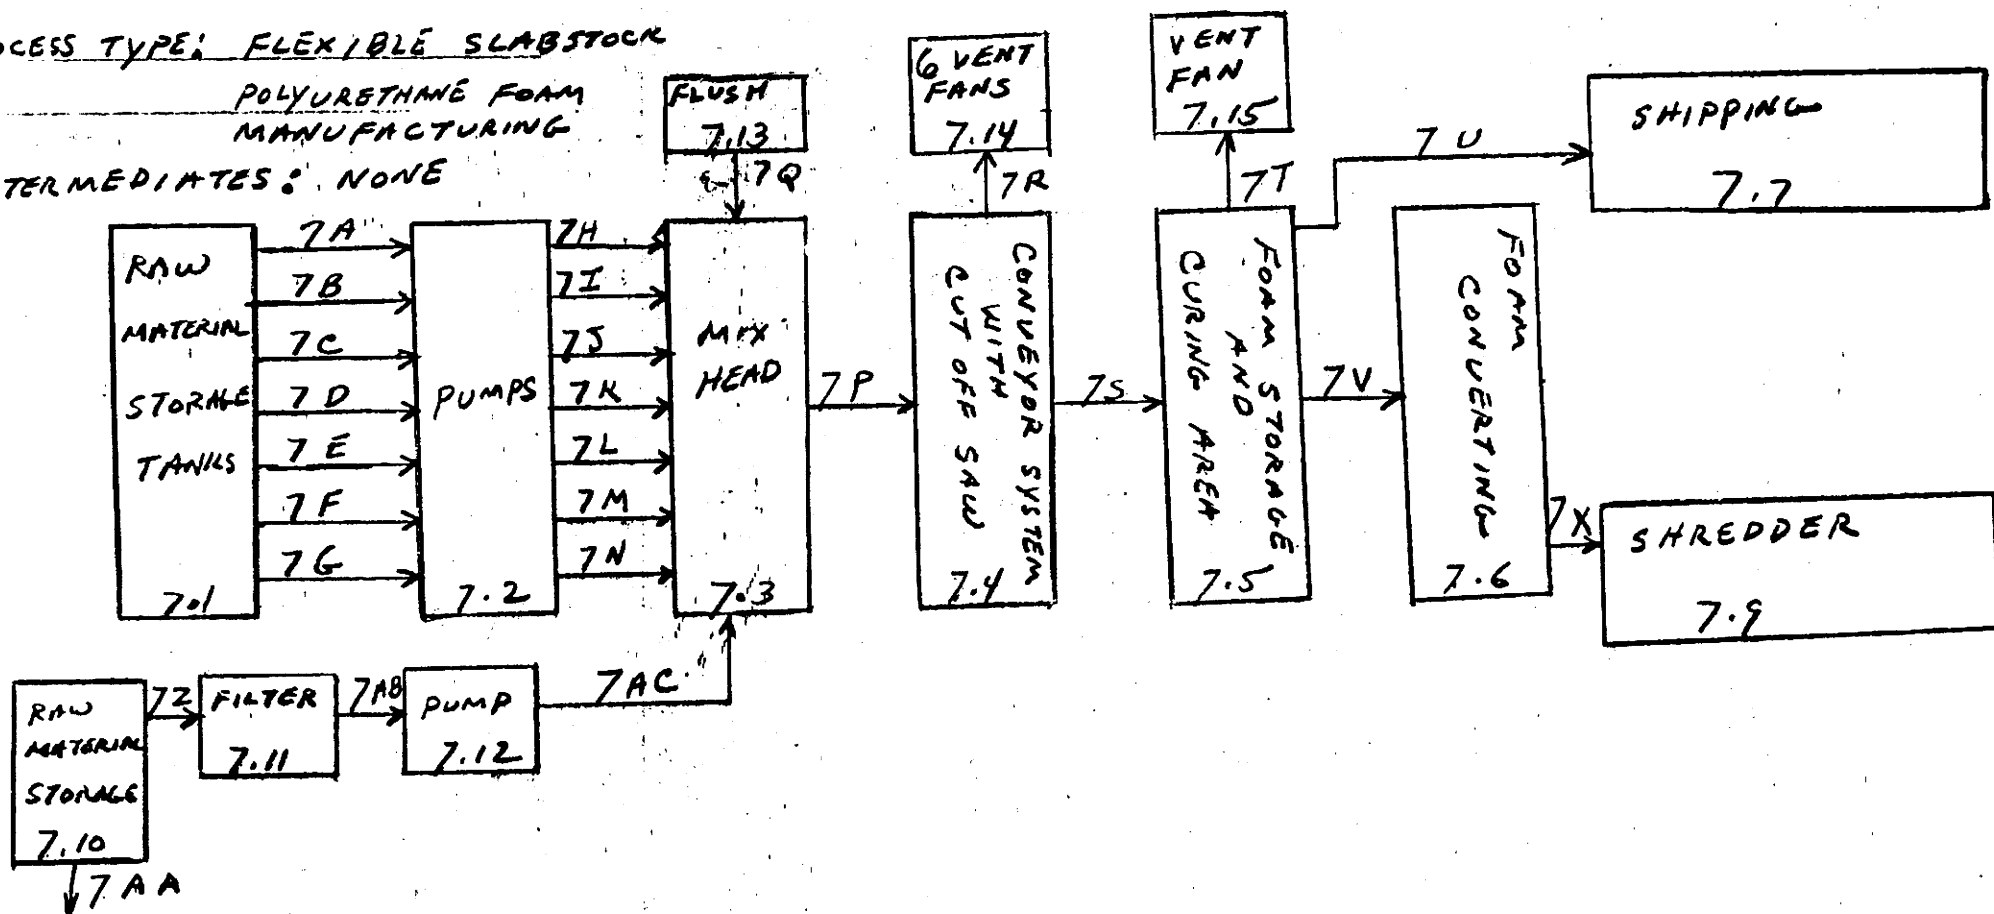 OCESS TYPE: FLEXIBLE SLABSTOCK
POLYURETHANE FOAM
MANUFACTURING
TERMEDIATES: NONE
FLUSH
7.13
7Q
6 VENT
FANS
7.14
7R
VENT
FAN
7.15
7T
7U
SHIPPING
7.7
RAW
MATERIAL
STORAGE
TANKS
7.1
7A
7B
7C
7D
7E
7F
7G
PUMPS
7.2
7H
7I
7J
7K
7L
7M
7N
MIX
HEAD
7.3
7P
CONVEYOR SYSTEM
WITH
CUT OFF SAW
7.4
7S
FOAM STORAGE
AND
CURING AREA
7.5
7V
FOAM
CONVERTING
7.6
7X
SHREDDER
7.9
RAW
MATERIAL
STORAGE
7.10
7Z
FILTER
7.11
7AB
PUMP
7.12
7AC
7AA